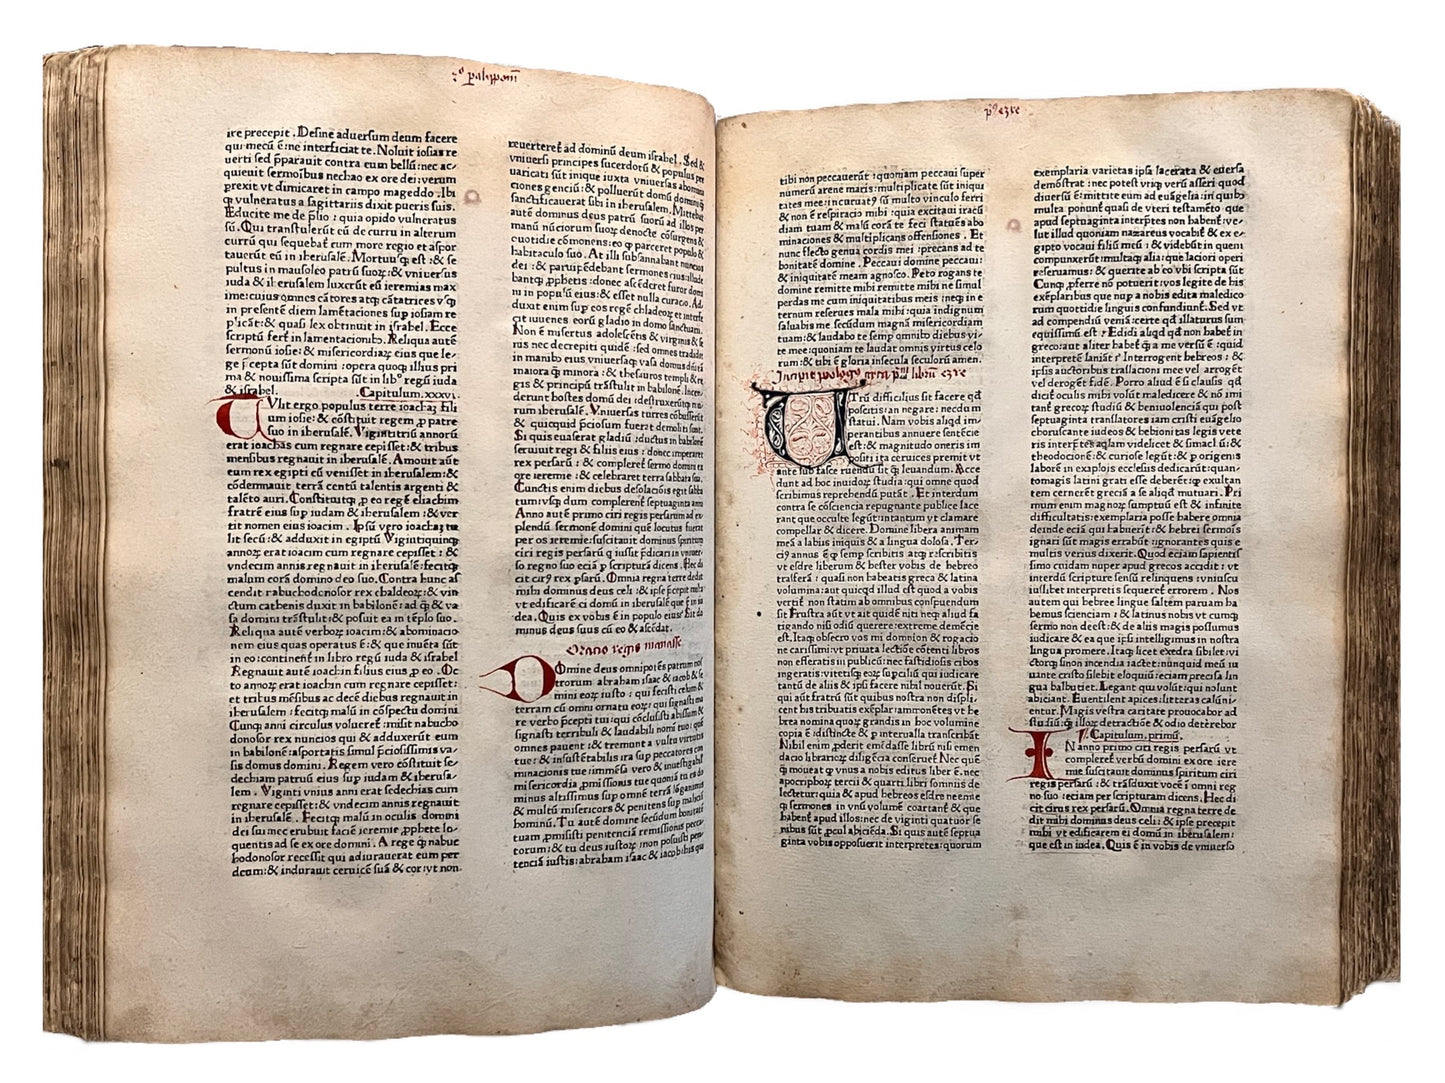 2º paliponū
ire precepit . Desine aduersum deum facere
qui mecū ē:ne interficiat te. Noluit iosias re
uerti sed p̄parauit contra eum bellū: nec ac-
quieuit sermoibus nechao ex ore dei: verum
prexit vt dimicaret in campo mageddo . Ibi
vulneratus a sagittariis dixit pueris suis.
Educite me de p̄lio : quia opido vulneratus
sū. Qui transtulerūt eū de curru in alterum
currū qui sequebat̄ eum more regio et aspor
tauerūt eū in iherusalē. Mortuusq̄ est : & se
pultus in mausoleo patrū suoꝝ: & vniuersus
iuda & iherusalem luxerūt eū ieremias max
ime: cuius omnes cātores atq̄ cātatrices vsq̄
in presentē diem lamētationes sup iosiam re
plicāt: & quasi lex obtinuit in israbel. Ecce
scriptū fert̄ in lamentationib9. Reliqua autē
sermonū iosie: & misericordiaꝝ eius que le-
ge p̄cepta sūt domini : opera quoq̄ illius pri
ma & nouissima scripta sūt in libº regū iuda
& israbel. .Capitulum.xxxvi.
TUlit ergo populus terre ioachaz fili
um iosie: & cōstituit regem p patre
suo in iherusalē. Vigintitriū annorū
erat ioachas cum regnare cepisset: & tribus
mensibus regnauit in iherusalē. Amouit autē
eum rex egipti cū venisset in iherusalem: &
cōdemnauit terrā centū talentis argenti &
talēto auri. Constituitq̄ p eo regē eliachim
fratrē eius sup iudam & iherusalem: & ver
tit nomen eius ioacim . Ipsū vero ioachaz tu
lit secū: & adduxit in egiptū. Vigintiquinq̄
annoꝝ erat ioacim cum regnare cepisset : &
vndecim annis regnauit in iherusalē: fecitq̄
malum corā domino deo suo. Contra hunc as
cendit nabuchodonosor rex chaldeoꝝ: & vin
ctum cathenis duxit in babilonē: ad & va
sa domini trāstulit: & posuit ea in tēplo suo.
Reliqua autē verboꝝ ioacim: & abominatio
nem eius quas operatus ē: & que inuēta sūt
in eo: continent̄ in libro regū iuda & israbel
Regnauit autē ioachin filius eius p eo . Oc
to annoꝝ erat ioachin cum regnare cepisset:
et tribus mēsibus ac decē diebus regnauit in
iherusalem: fecitq̄ malū in cōspectu domini
Cunq̄ anni circulus volueret̄: misit nabucho
donosor rex nuncios qui & adduxerūt eum
in babilonē: asportatis simul p̄ciosissimis va-
sis domus domini. Regem vero cōstituit se-
dechiam patruū eius sup iudam & iherusa-
lem . Viginti vnius anni erat sedechias cum
regnare cepisset: & vndecim annis regnauit
in iherusalē. Fecitq̄ malū in oculis domini
dei sui: nec erubuit faciē ieremie p̄phete lo-
quentis ad se ex ore domini . A rege nabuc
hodonosor recessit qui adiurauerat eum per
deum: & indurauit ceruicē suā & cor: vt non
reuerteret̄ ad dominū deum israbel. Sed &
vniuersi principes sacerdotū & populus pre
uaricati sūt inique iuxta vniuersas abomina
ciones genciū: & polluerūt domū dominiq̄
sanctificauerat sibi in iherusalem. Mittebat
autē dominus deus patrū suorū ad illos per
manū nūciorum suoꝝ: denocte cōsurgens &
cuotidie cōmonens: eo q̄ parceret populo &
habitaculo suo. At illi subsannabant nuncios
dei : & paruip̄debant sermones eius: illude
bantq̄ p̄phetis: donec ascēderet furor domi
ni in populū eius: & esset nulla curacio. Ad
duxit enim sup eos regē chladeoꝝ et interfe
cit iuuenes eorū gladio in domo sanctuarii.
Non ē misertus adolescētis & virginis & se
nis nec decrepiti quidē : sed omnes tradidit
in manib9 eius, vniuersaq̄ vasa domus dn̄i tā
maiora q̄ minora : & thesauros templi & re
gis & principū trāstulit in babilonē. Incen-
derunt hostes domū dei : destruxerūtq̄ mu
rum iherusalē. Vniuersas turres cōbusserūt
& quicquid p̄ciosum fuerat demoliti sunt.
Si quis euaserat gladiū : ductus in babilonē
seruiuit regi & filiis eius : donec imperaret
rex persarū : & compleret̄ sermo domini ex
ore ieremie: & celebraret terra sabbata sua.
Cunctis enim diebus desolaciōis egit sabba
tum: vsq̄ dum complerent̄ septuaginta anni
Anno autē primo ciri regis persarum ad ex
plendū sermonē domini quē locutus fuerat
per os ieremie: suscitauit dominus spiritum
ciri regis persarū q iussit p̄dicari in vniuer-
so regno suo eciā p scripturā dicens . Hec di
cit cir9 rex p̄sarū. Omnia regna terre dedit
mihi dominus deus celi : & ipse p̄cepit mihi
vt edificarē ei domū in iherusalē que ē in iu
dea. Quis ex vobis ē in populo eius? Sit do
minus deus suus cū eo & ascēdat.
Oracio regis manasse
DOmine deus omnipotēs patrum nos
trorum abraham isaac & iacob & se
mini eoꝝ iusto : qui fecisti celum &
terram cū omni ornatu eoꝝ: qui signasti ma
re verbo p̄cepti tui: qui cōclusisti abissum &
signasti terribuli & laudabili nomi tuo : quē
omnes pauent : & tremunt a vultu virtutis
tue : & insustētabilis ira sup peccatores com
minacionis tue: immēsa vero & inuestigabil
misericordia p̄missionis tue quoniā tu es do
minus altissimus sup omnē terrā lōganimis
& multū misericors & penitens sup malicias
hominū. Tu autē domine secūdum bonitatē
tuam p̄misisti penitenciā remissionis pecca-
torum: & tu deus iustoꝝ: non posuisti peni-
tenciā iustis: abraham isaac & iacob: his qui
pº ezre
tibi non peccauerūt : quoniam peccaui super
numerū arene maris: multiplicate sūt iniqui
tates mee: incuruatꝰ sū multo vinculo ferri
& non ē respiracio mihi : quia excitaui iracū
diam tuam & malū corā te feci statuēs abo
minaciones & multiplicans offensiones . Et
nunc flecto genua cordis mei : precans ad te
bonitatē domine . Peccaui domine peccaui:
& iniquitatē meam agnosco. Peto rogans te
domine remitte mihi remitte mihi ne simul
perdas me cum iniquitatibus meis : neq̄ in e
ternum reserues mala mihi : quia indignum
saluabis me secūdum magnā misericordiam
tuam : & laudabo te semp omnib9 diebus vi-
te mee: quoniam te laudat omnis virtus celo
rum: & tibi ē gloria insecula seculorū amen.
Incipit prologꝰ in libru ezre
UTrū difficilius sit facere qd̄
positis: an negare: necdum
statui. Nam vobis aliqd̄ im
perantibus annuere sentēcie
est: & magnitudo oneris im
positi ita ceruices premit vt
ante sub fasce ruendū sit q̄ leuandum . Acce
dunt ad hoc inuidoꝝ studia : qui omne quod
scribimus reprehendū putāt . Et interdum
contra se cōsciencia repugnante publice lace
rant que occulte legūt: intantum vt clamare
compellar & dicere. Domine libera animam
meā a labiis iniquis & a lingua dolosa. Ter-
ciꝰ annus ē q̄ semp scribitis atq̄ rescribitis
vt esdre librum & hester vobis de hebreo
trāsferā : quasi non habeatis greca & latina
volumina: aut quicqd̄ illud est quod a vobis
vertit̄ non statim ab omnibus conspuendum
sit Frustra autē vt ait quidē niti neq̄ aliud fa
tigando nisi odiū querere: extreme demēcie
est. Itaq̄ obsecro vos mi domnion & rogacio
ne carissimi: vt priuata lectiōe cōtenti libros
non efferatis in publicū: nec fastidiosis cibos
ingeratis: vitetisq̄ eoꝝ supciliū qui iudicare
tantū de aliis & ipsi facere nihil nouerūt. Si
qui autē fratrū sūt quibus nostra non displi-
cent his tribuatis exēplar: ammonētes vt he
brea nomina quoꝝ grandis in hoc volumine
copia ē : distincte & p interualla transcribāt
Nihil enim p̄derit emēdasse librū nisi emen
dacio librarioꝝ diligēcia conseruet̄ Nec quē
q̄ moueat q̄ vnus a nobis editus liber ē . nec
apocriphoꝝ tercii & quarti libri somnus de
lectetur: quia & apud hebreos esdre neemie
q̄ sermones in vnū volumē coartant̄ & que
habent̄ apud illos: nec de viginti quatuor se
nibus sūt p̄cul abiciēda. Si quis autē septua
ginta vobis opposuerit interpretes: quorum
exemplaria varietas ipsa lacerata & euersa
demōstrat : nec potest vtiq̄ verū asseri quod
diuersū ē: mittite eum ad euāgelia: in quib9
multa ponunt̄ quasi de vteri testamēto que
apud septuaginta interp̄tes non habent̄ ve-
lut illud quoniam nazareus vocabit̄ & ex e-
gipto vocaui filiū meū : & videbūt in quem
compunxerunt: multaq̄ alia: que laciori operi
reseruamus : & querite ab eo vbi scripta sūt
Cunq̄ p̄ferre nō potuerit: vos legite de his
exēplaribus que nup a nobis edita maledico
rum quotidie linguis confundiunt̄. Sed vt
ad compendiū veniā: certe qd̄ illaturus sum
equissimū est : Edidi aliqd̄ qd̄ non habet̄ in
greco: aut aliter habet̄ q̄ a me versū ē : quid
interpretē laniāt? Interrogent hebreos : &
ipsis auctoribus traslacioni mee vel arroget̄
vel deroget̄ fidē. Porro aliud ē si clausis qd̄
dicit̄ oculis mihi volūt maledicere & nō imi
tant̄ grecoꝝ studiū & beniuolenciā qui post
septuaginta translatores iam cristi euāgelio
choruscante iudeos & hebionitas legis vete
ris interp̄tes aqlam videlicet & simacū : &
theodocionē : & curiose legūt : & p origenis
laborē in exaplois ecclesiis dedicarūt: quan-
tomagis latini grati esse deberēt: q̄ exultan
tem cernerēt greciā a se aliqd̄ mutuari . Pri
mum enim magnoꝝ sumptuū est & infinite
difficultatis: exemplaria posse habere omnia
deinde eciā qui habuerīt: & hebrei sermōis
ignari sūt magis errabūt : ignorantes quis e
multis verius dixerit. Quod eciam sapientis
simo cuidam nuper apud grecos accidit : vt
interdū scripture sensū relinquens : vniuscu
iuslibet interpretis sequeret̄ errorem . Nos
autem qui hebree lingue saltem paruam ha
bemus scienciam : & latinus nobis vt cumq̄
sermo non deest : & de aliis magis possumus
iudicare & ea que ipsi intelligimus in nostra
lingua promere. Itaq̄ licet exedra sibilet: vi
ctorq̄ sinon incendia iactet: nunquid meū iu
uante cristo silebit eloquiū: eciam precisa lin
gua balbutiet. Legant qui volūt: qui nolunt
abiciant. Euentilent apices: litteras calūni-
entur. Magis vestra caritate prouocabor ad
studiū: q̄ illoꝝ detractiōe & odio deterrebor
Capitulum, primū.
IN anno primo ciri regis persarū vt
complereꝉ verbū domini ex ore iere
mie suscitauit dominus spiritum ciri
regis persarū : & trāsduxit vocē ī omni reg
no suo : eciam per scripturam dicens. Hec di
cit cirus rex persarū. Omnia regna terre de
dit mihi dominus deus celi : & ipse precepit
mihi vt edificarem ei domū in iherusalem :
que est in iudea. Quis ē in vobis de vniuerso